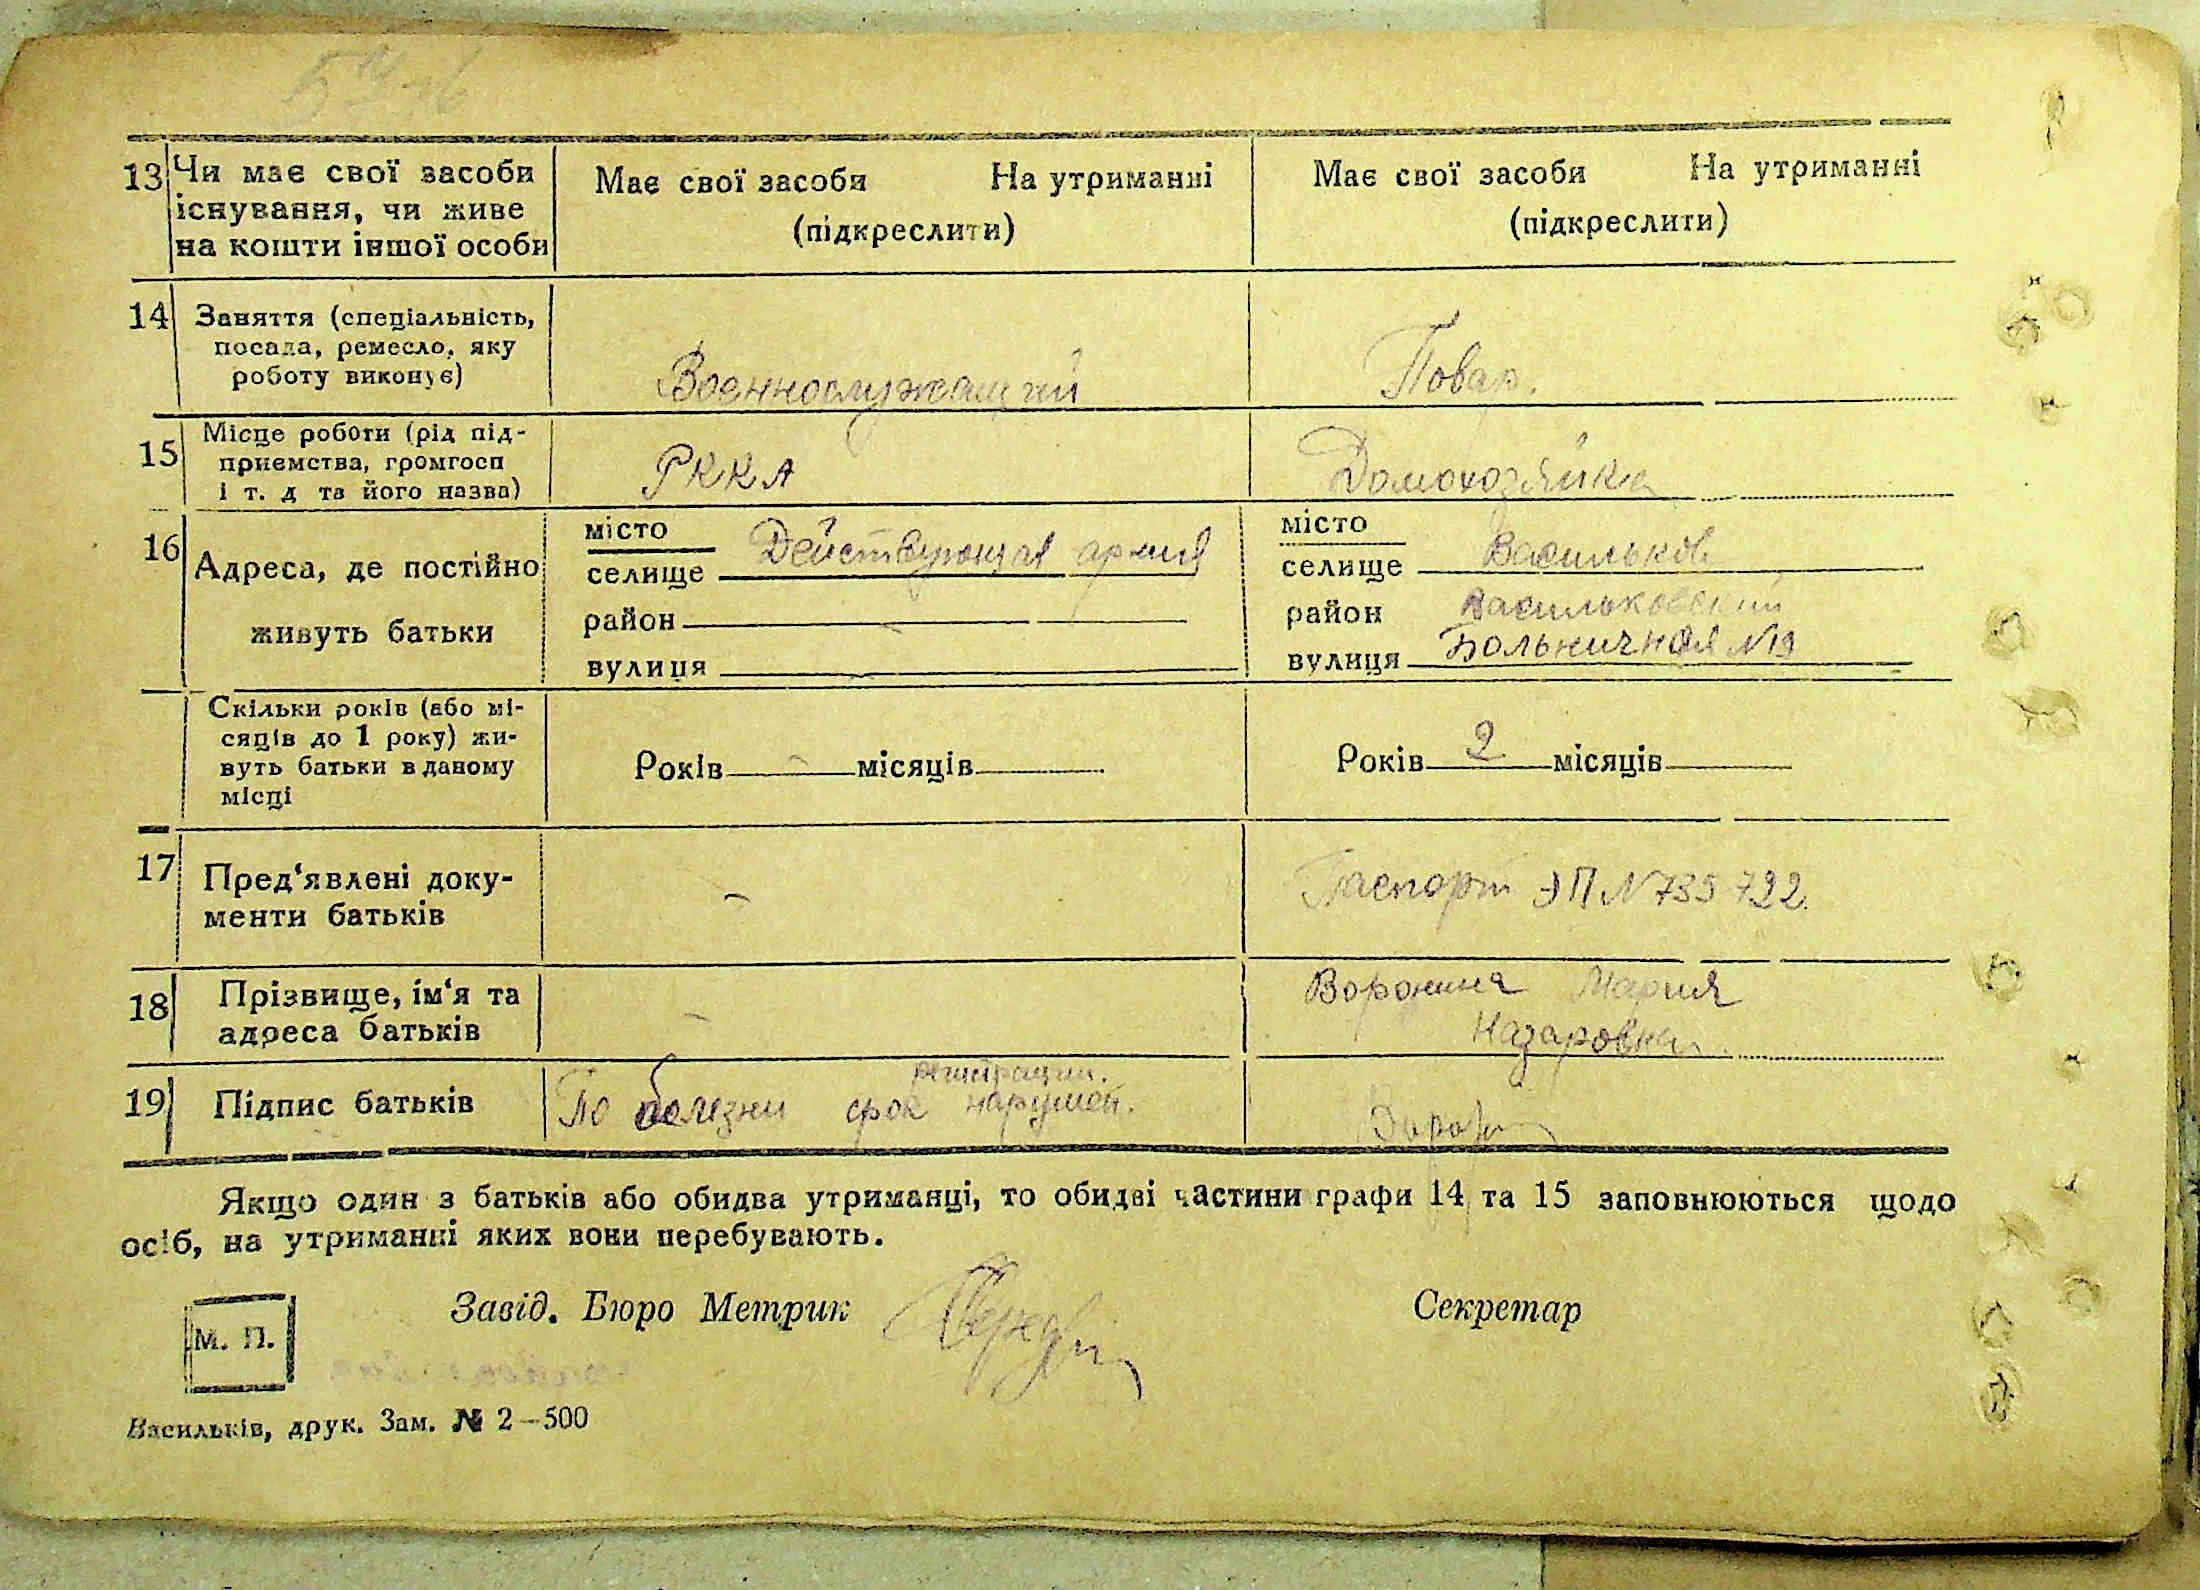 13 Чи має свої засоби Має свої засоби На утриманні Має свої засоби На утриманні
існування, чи живе (підкреслити) (підкреслити)
на кошти іншої особи
14 Заняття (спеціальність,
посада, ремесло, яку
роботу виконує) Военнослужащий Повар.
15 Місце роботи (рід під-
приємства, громгосп РККА Домохозяйка
і т. д та його назва)
16 Адреса, де постійно
живуть батьки
місто
селище Действующая армия
район
вулиця
місто
селище Васильков
район Васильковский
вулиця Больничная №19
Скільки років (або мі-
сяців до 1 року) жи-
вуть батьки в даному
місці
Років - місяців Років 2 місяців
17 Пред'явлені доку-
менти батьків - Паспорт ЭП N 735 722.
18 Прізвище, ім'я та
адреса батьків - Воронина Мария
Назаровна.
19 Підпис батьків По болезни срок регистрации. нарушен.
Якщо один з батьків або обидва утриманці, то обидві частини графи 14 та 15 заповнюються щодо
осіб, на утриманні яких вони перебувають.
Завід. Бюро Метрик Секретар
М. П.
Васильків, друк. Зам. № 2-500